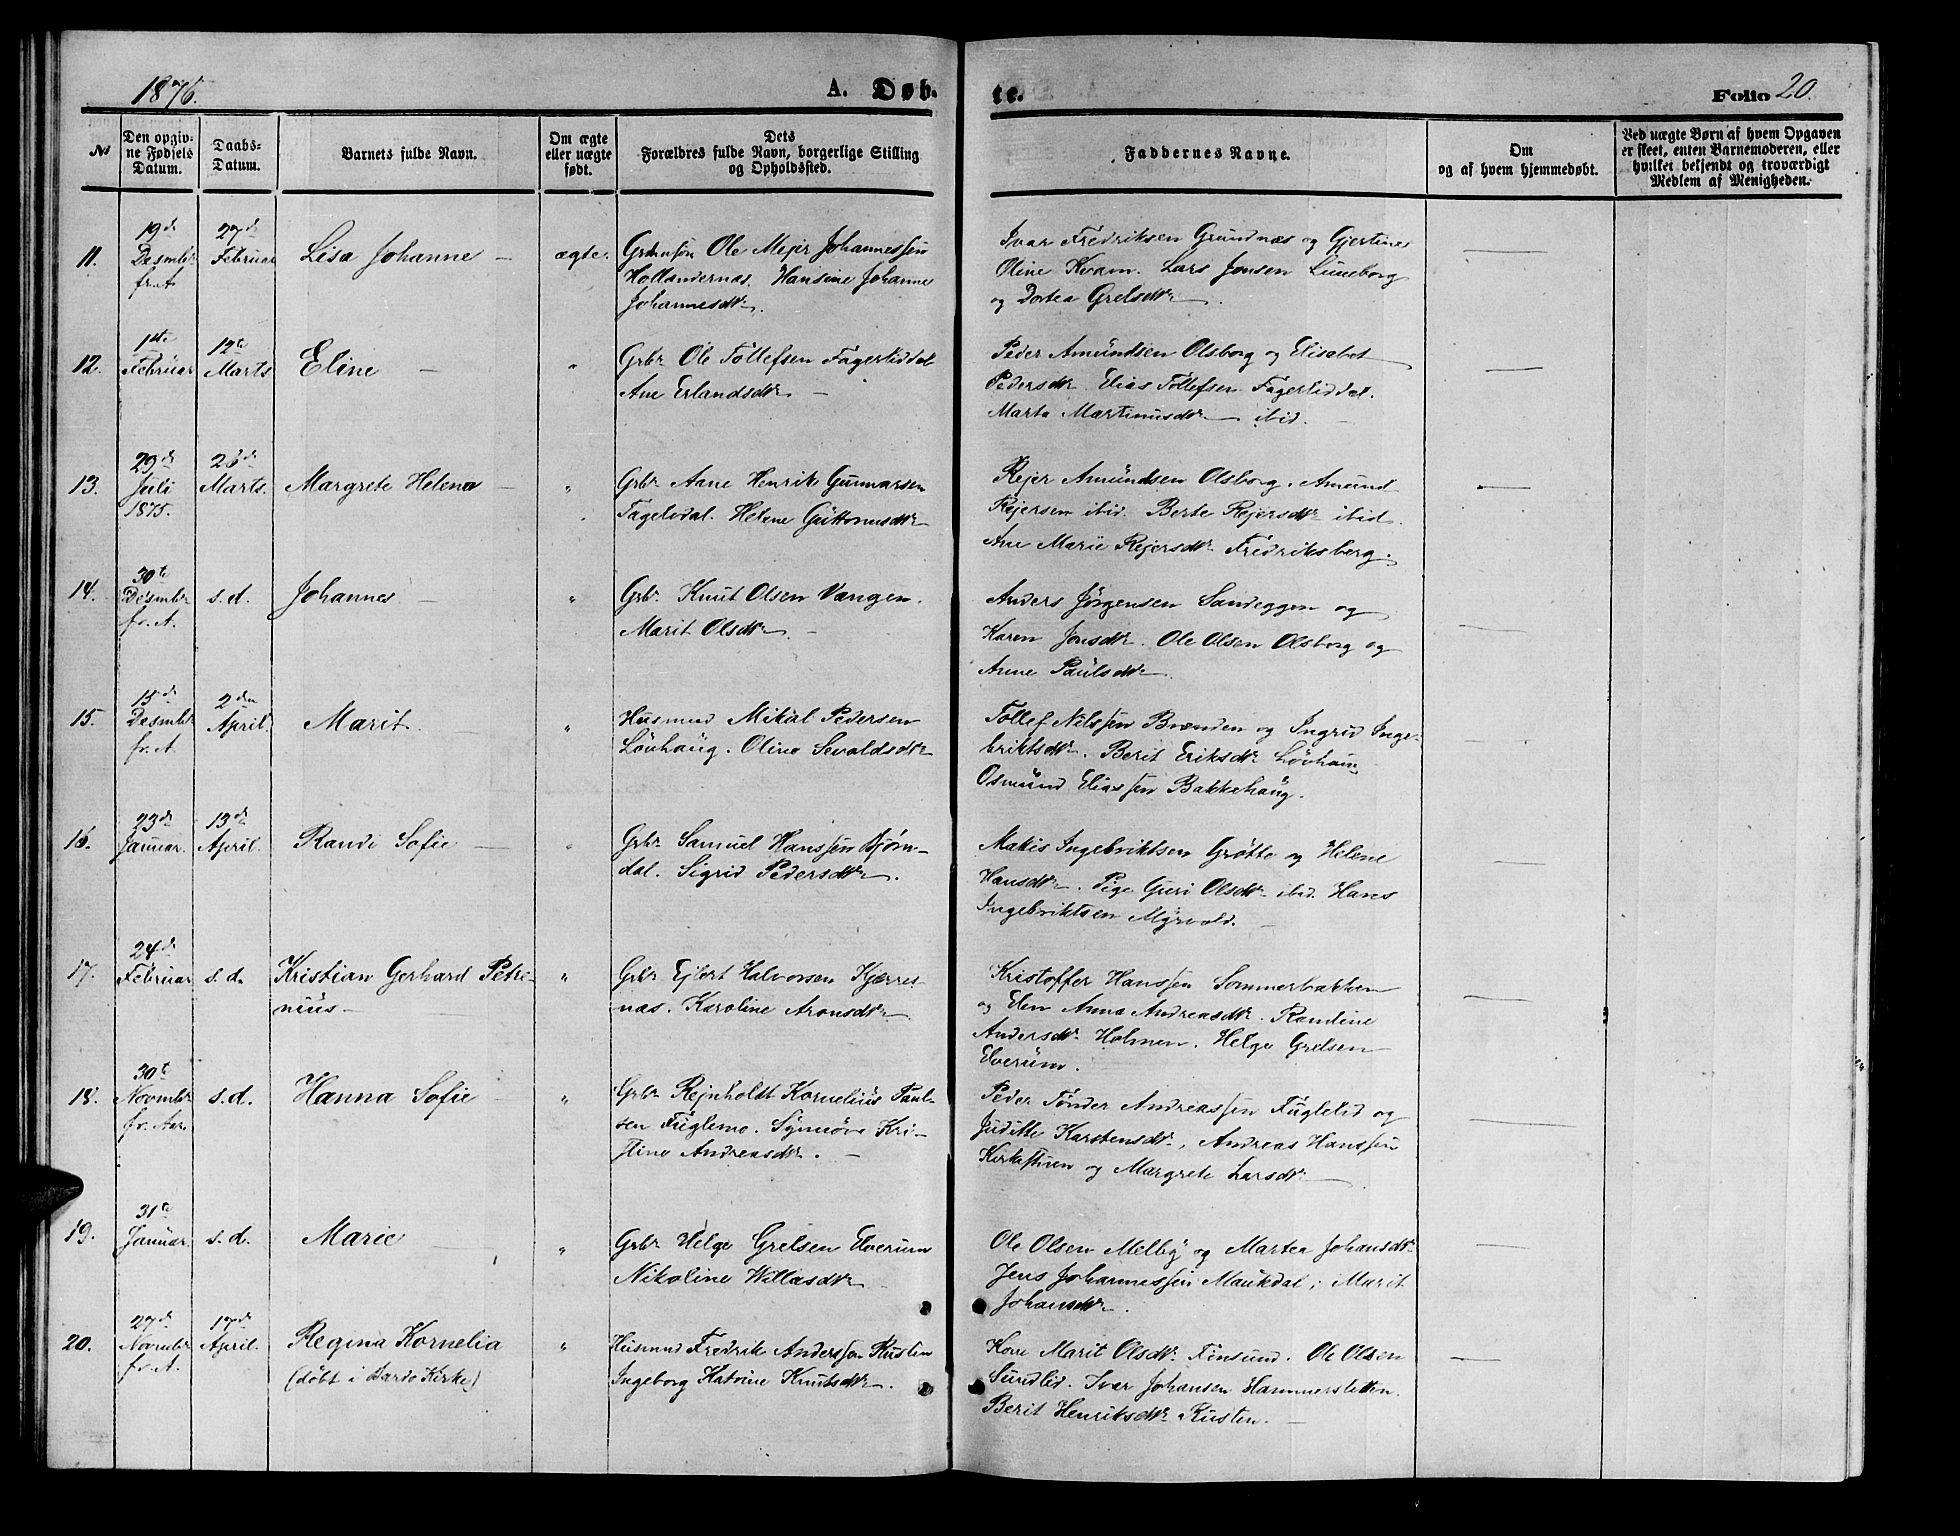 1876.
A. Døb-
te.
Folio 20.
No
Den opgiv-
ne Fødsels
Datum.
Daabs-
Datum.
Barnets fulde Navn.
Om ægte
eller uægte
født.
Dets
Forældres fulde Navn, borgerlige Stilling
og Opholdssted.
Faddernes Navne.
Om
og af hvem hjemmedøbt.
Ved uægte Børn af hvem Opgaven
er skeet, enten Barnemoderen, eller
hvilket bekjendt og troværdigt
Medlem af Menigheden.
11.
19de
Desmbr
fr. A.
27de
Februar
Lisa Johanne
ægte.
Ole Mejer Johannessen
Hollandernæs. Hansine Johanne
Johannesdtr.
Ivar Fredriksen Grundnæs og Gjertine
Oline Kvam. Lars Jonsen Luneborg
og Dortea Grelsdtr.
12.
1ste
Februar
12te
Marts
Eline
"
Grbr Ole Tollefsen Fagerliddal
Ane Erlandsdtr
Peder Amundsen Olsborg og Elisabet
Pedersdtr Elias Tollefsen Fagerliddal.
Marta Martinusdtr ibid.
13.
29de
Juli
1875.
26de
Marts.
Margrete Helena
"
Grbr Aane Henrik Gunnarsen
Fagelidal. Helene Guttormsdtr
Rejer Amundsen Olsborg. Amund
Rejersen ibid. Berte Rejersdtr ibid.
Ane Marie Rejersdtr Fredriksberg.
14.
30te
Desmbr
fr. A.
s. d.
Johannes
"
Grbr Knut Olsen Vangen.
Marit Olsdtr.
Anders Jørgensen Sandeggen og
Karen Jonsdtr. Ole Olsen Olsborg og
Anne Paulsdtr.
15.
15de
Desmbr
fr. A.
2den
April.
Marit.
"
Husmnd Mikal Pedersen
Løvhaug. Olina Sevaldsdtr
Tollef Nilssen Brænden og Ingrid Inge-
briktsdtr. Berit Eriksdtr Løvhaug
Osmund Eliassen Bakkehaug.
16.
23de
Januar.
13de
April.
Randi Sofie
"
Grbr Samuel Hanssen Bjørn-
dal. Sigrid Pedersdtr.
Makis Ingebriktsen Grøtte og Helene
Hansdtr. Pige Guri Olsdtr ibid. Hans
Ingebriktsen Myrvold.
17.
24de
Februar
s. d.
Kristian Gerhard Petre-
nius
"
Grbr Ejlert Halvorsen Kjærres-
næs. Karoline Aronsdtr
Kristoffer Hanssen Sommerbakken
og Elen Anna Andreasdtr. Randine
Andersdtr Holmen. Helge Grelsen
Elverum.
18.
30te
Novmbr
fr. Aar.
s. d.
Hanna Sofie
"
Grbr Rejnholdt Kornelius Paul-
sen Fuglemo. Synnøve Kri-
stine Andreasdtr.
Peder Tønder Andreassen Fuglelid og
Juditte Karstensdtr, Andreas Hanssen
Kirkestuen og Margrete Larsdtr
19.
31te
Januar.
s. d.
Marie
"
Grbr Helge Grelsen Elverum
Nikoline Willasdtr
Ole Olsen Melby og Martea Johansdtr
Jens Johannessen Maukdal; Marit
Johansdtr.
20.
27de
Novmbr
fr. A.
17de
April.
Regina Kornelia
(døbt i Bardo Kirke)
"
Husmnd Fredrik Anderssen Rusten
Ingeborg Katrine Knutsdtr.
Kone Marit Olsdtr Finsund. Ole Olsen
Sundlid. Ivar Johansen Hammersletten
Berit Henriksdtr Rusten.